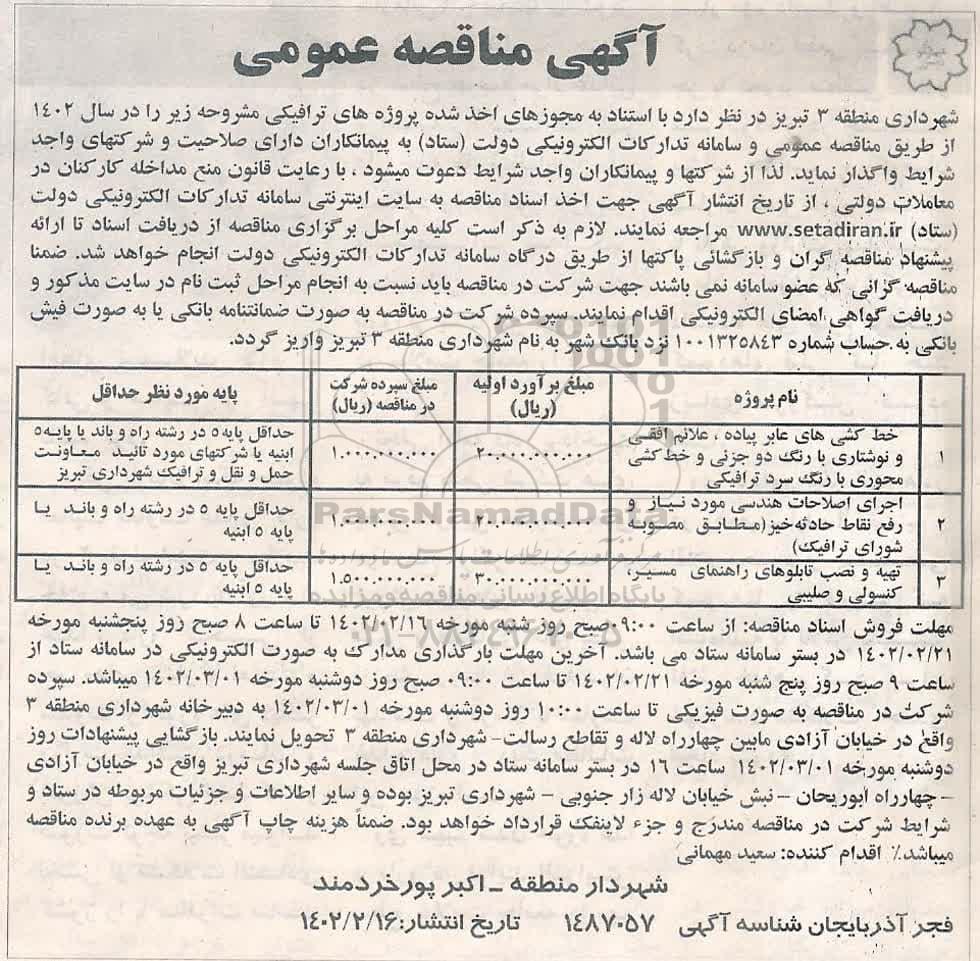 آگهی مناقصه عمومی
شهرداری منطقه ۳ تبریز در نظر دارد با استناد به مجوزهای اخذ شده پروژه های ترافیکی مشروحه زیر را در سال ۱۴۰۲
از طریق مناقصه عمومی و سامانه تدارکات الکترونیکی دولت (ستاد) به پیمانکاران دارای صلاحیت و شرکتهای واجد
شرایط واگذار نماید. لذا از شرکتها و پیمانکاران واجد شرایط دعوت میشود ، با رعایت قانون منع مداخله کارکنان در
معاملات دولتی ، از تاریخ انتشار آگهی جهت اخذ اسناد مناقصه به سایت اینترنتی سامانه تدارکات الکترونیکی دولت
(ستاد) www.setadiran.ir مراجعه نمایند. لازم به ذکر است کلیه مراحل برگزاری مناقصه از دریافت اسناد تا ارائه
پیشنهاد مناقصه گران و بازگشائی پاکتها از طریق درگاه سامانه تدارکات الکترونیکی دولت انجام خواهد شد. ضمنا
مناقصه گرانی که عضو سامانه نمی باشند جهت شرکت در مناقصه باید نسبت به انجام مراحل ثبت نام در سایت مذکور و
دریافت گواهی امضای الکترونیکی اقدام نمایند. سپرده شرکت در مناقصه به صورت ضمانتنامه بانکی یا به صورت فیش
بانکی به حساب شماره ۱۰۰۱۳۲۵۸۴۳ نزد بانک شهر به نام شهرداری منطقه ۳ تبریز واریز گردد.
نام پروژه
مبلغ برآورد اولیه
(ریال)
مبلغ سپرده شرکت
در مناقصه (ریال)
پایه مورد نظر حداقل
۱
خط کشی های عابر پیاده ، علائم افقی
و نوشتاری با رنگ دو جزئی و خط کشی
محوری با رنگ سرد ترافیکی
۲۰.۰۰۰.۰۰۰.۰۰۰
۱.۰۰۰.۰۰۰.۰۰۰
حداقل پایه ۵ در رشته راه و باند یا پایه ۵
ابنیه یا شرکتهای مورد تائید معاونت
حمل و نقل و ترافیک شهرداری تبریز
۲
اجرای اصلاحات هندسی مورد نیاز و
رفع نقاط حادثه خیز(مطابق مصوبه
شورای ترافیک)
۲۰.۰۰۰.۰۰۰.۰۰۰
۱.۰۰۰.۰۰۰.۰۰۰
حداقل پایه ۵ در رشته راه و باند یا
پایه ۵ ابنیه
۳
تهیه و نصب تابلوهای راهنمای مسیر،
کنسولی و صلیبی
۳۰.۰۰۰.۰۰۰.۰۰۰
۱.۵۰۰.۰۰۰.۰۰۰
حداقل پایه ۵ در رشته راه و باند یا
پایه ۵ ابنیه
ParsNamadData
پایگاه اطلاع رسانی مناقصه و مزایده
مهلت فروش اسناد مناقصه: از ساعت ۰۹:۰۰صبح روز شنبه مورخه ۱۴۰۲/۰۲/۱۶ تا ساعت ۸ صبح روز پنجشنبه مورخه
۱۴۰۲/۰۲/۲۱ در بستر سامانه ستاد می باشد. آخرین مهلت بارگذاری مدارک به صورت الکترونیکی در سامانه ستاد از
ساعت ۹ صبح روز پنج شنبه مورخه ۱۴۰۲/۰۲/۲۱ تا ساعت ۰۹:۰۰ صبح روز دوشنبه مورخه ۱۴۰۲/۰۳/۰۱ میباشد. سپرده
شرکت در مناقصه به صورت فیزیکی تا ساعت ۱۰:۰۰ روز دوشنبه مورخه ۱۴۰۲/۰۳/۰۱ به دبیرخانه شهرداری منطقه ۳
واقع در خیابان آزادی مابین چهارراه لاله و تقاطع رسالت- شهرداری منطقه ۳ تحویل نمایند. بازگشایی پیشنهادات روز
دوشنبه مورخه ۱۴۰۲/۰۳/۰۱ ساعت ۱۶ در بستر سامانه ستاد در محل اتاق جلسه شهرداری تبریز واقع در خیابان آزادی
- چهارراه ابوریحان - نبش خیابان لاله زار جنوبی - شهرداری تبریز بوده و سایر اطلاعات و جزئیات مربوطه در ستاد و
شرایط شرکت در مناقصه مندرج و جزء لاینفک قرارداد خواهد بود. ضمناً هزینه چاپ آگهی به عهده برنده مناقصه
میباشد٪ اقدام کننده: سعید مهمانی
شهردار منطقه - اکبر پورخردمند
فجر آذربایجان شناسه آگهی ۱۴۸۷۰۵۷ تاریخ انتشار: ۱۴۰۲/۲/۱۶